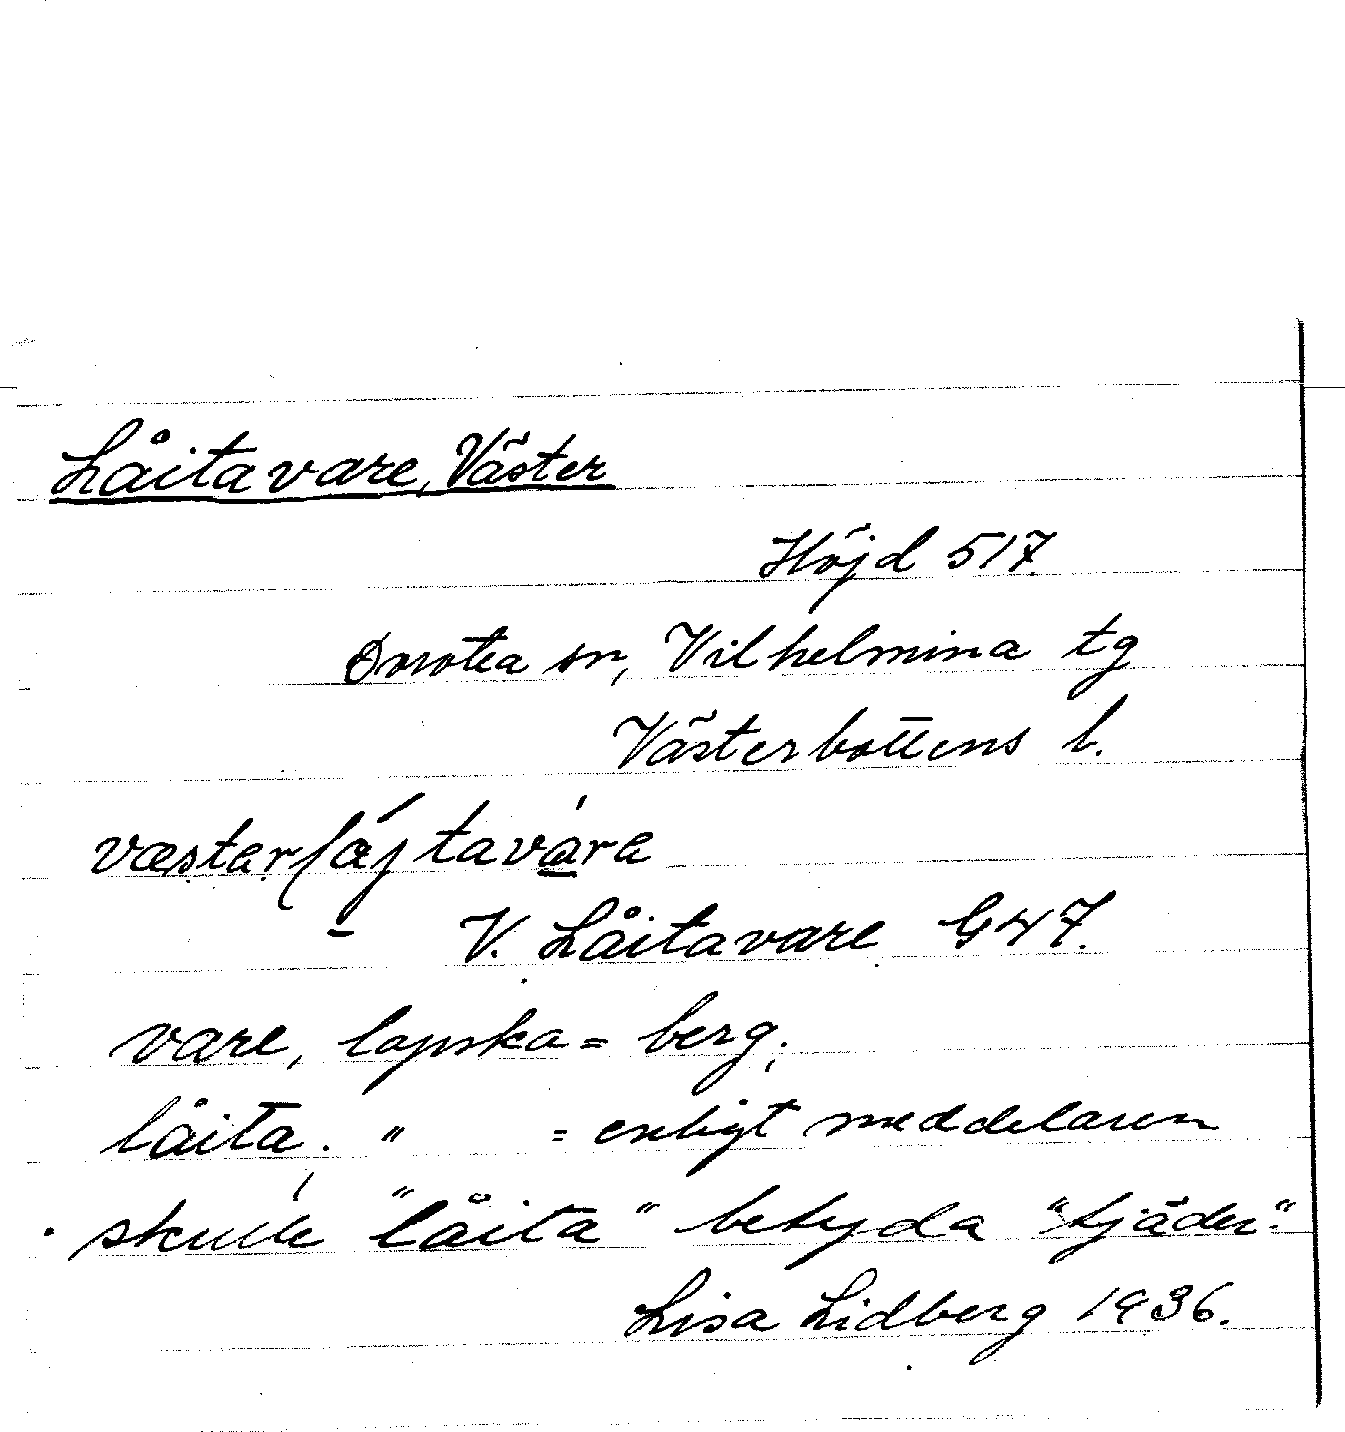 Låitavare, Väster
Höjd 517.
Dorotea sn, Vilhelmina tg
Västerbottens l.
V. Låitavare G47.
vare, lapska = berg;
låita, " = enligt meddelaren
skulle "låita" betyda "tjäder".
Lisa Lidberg 1936.